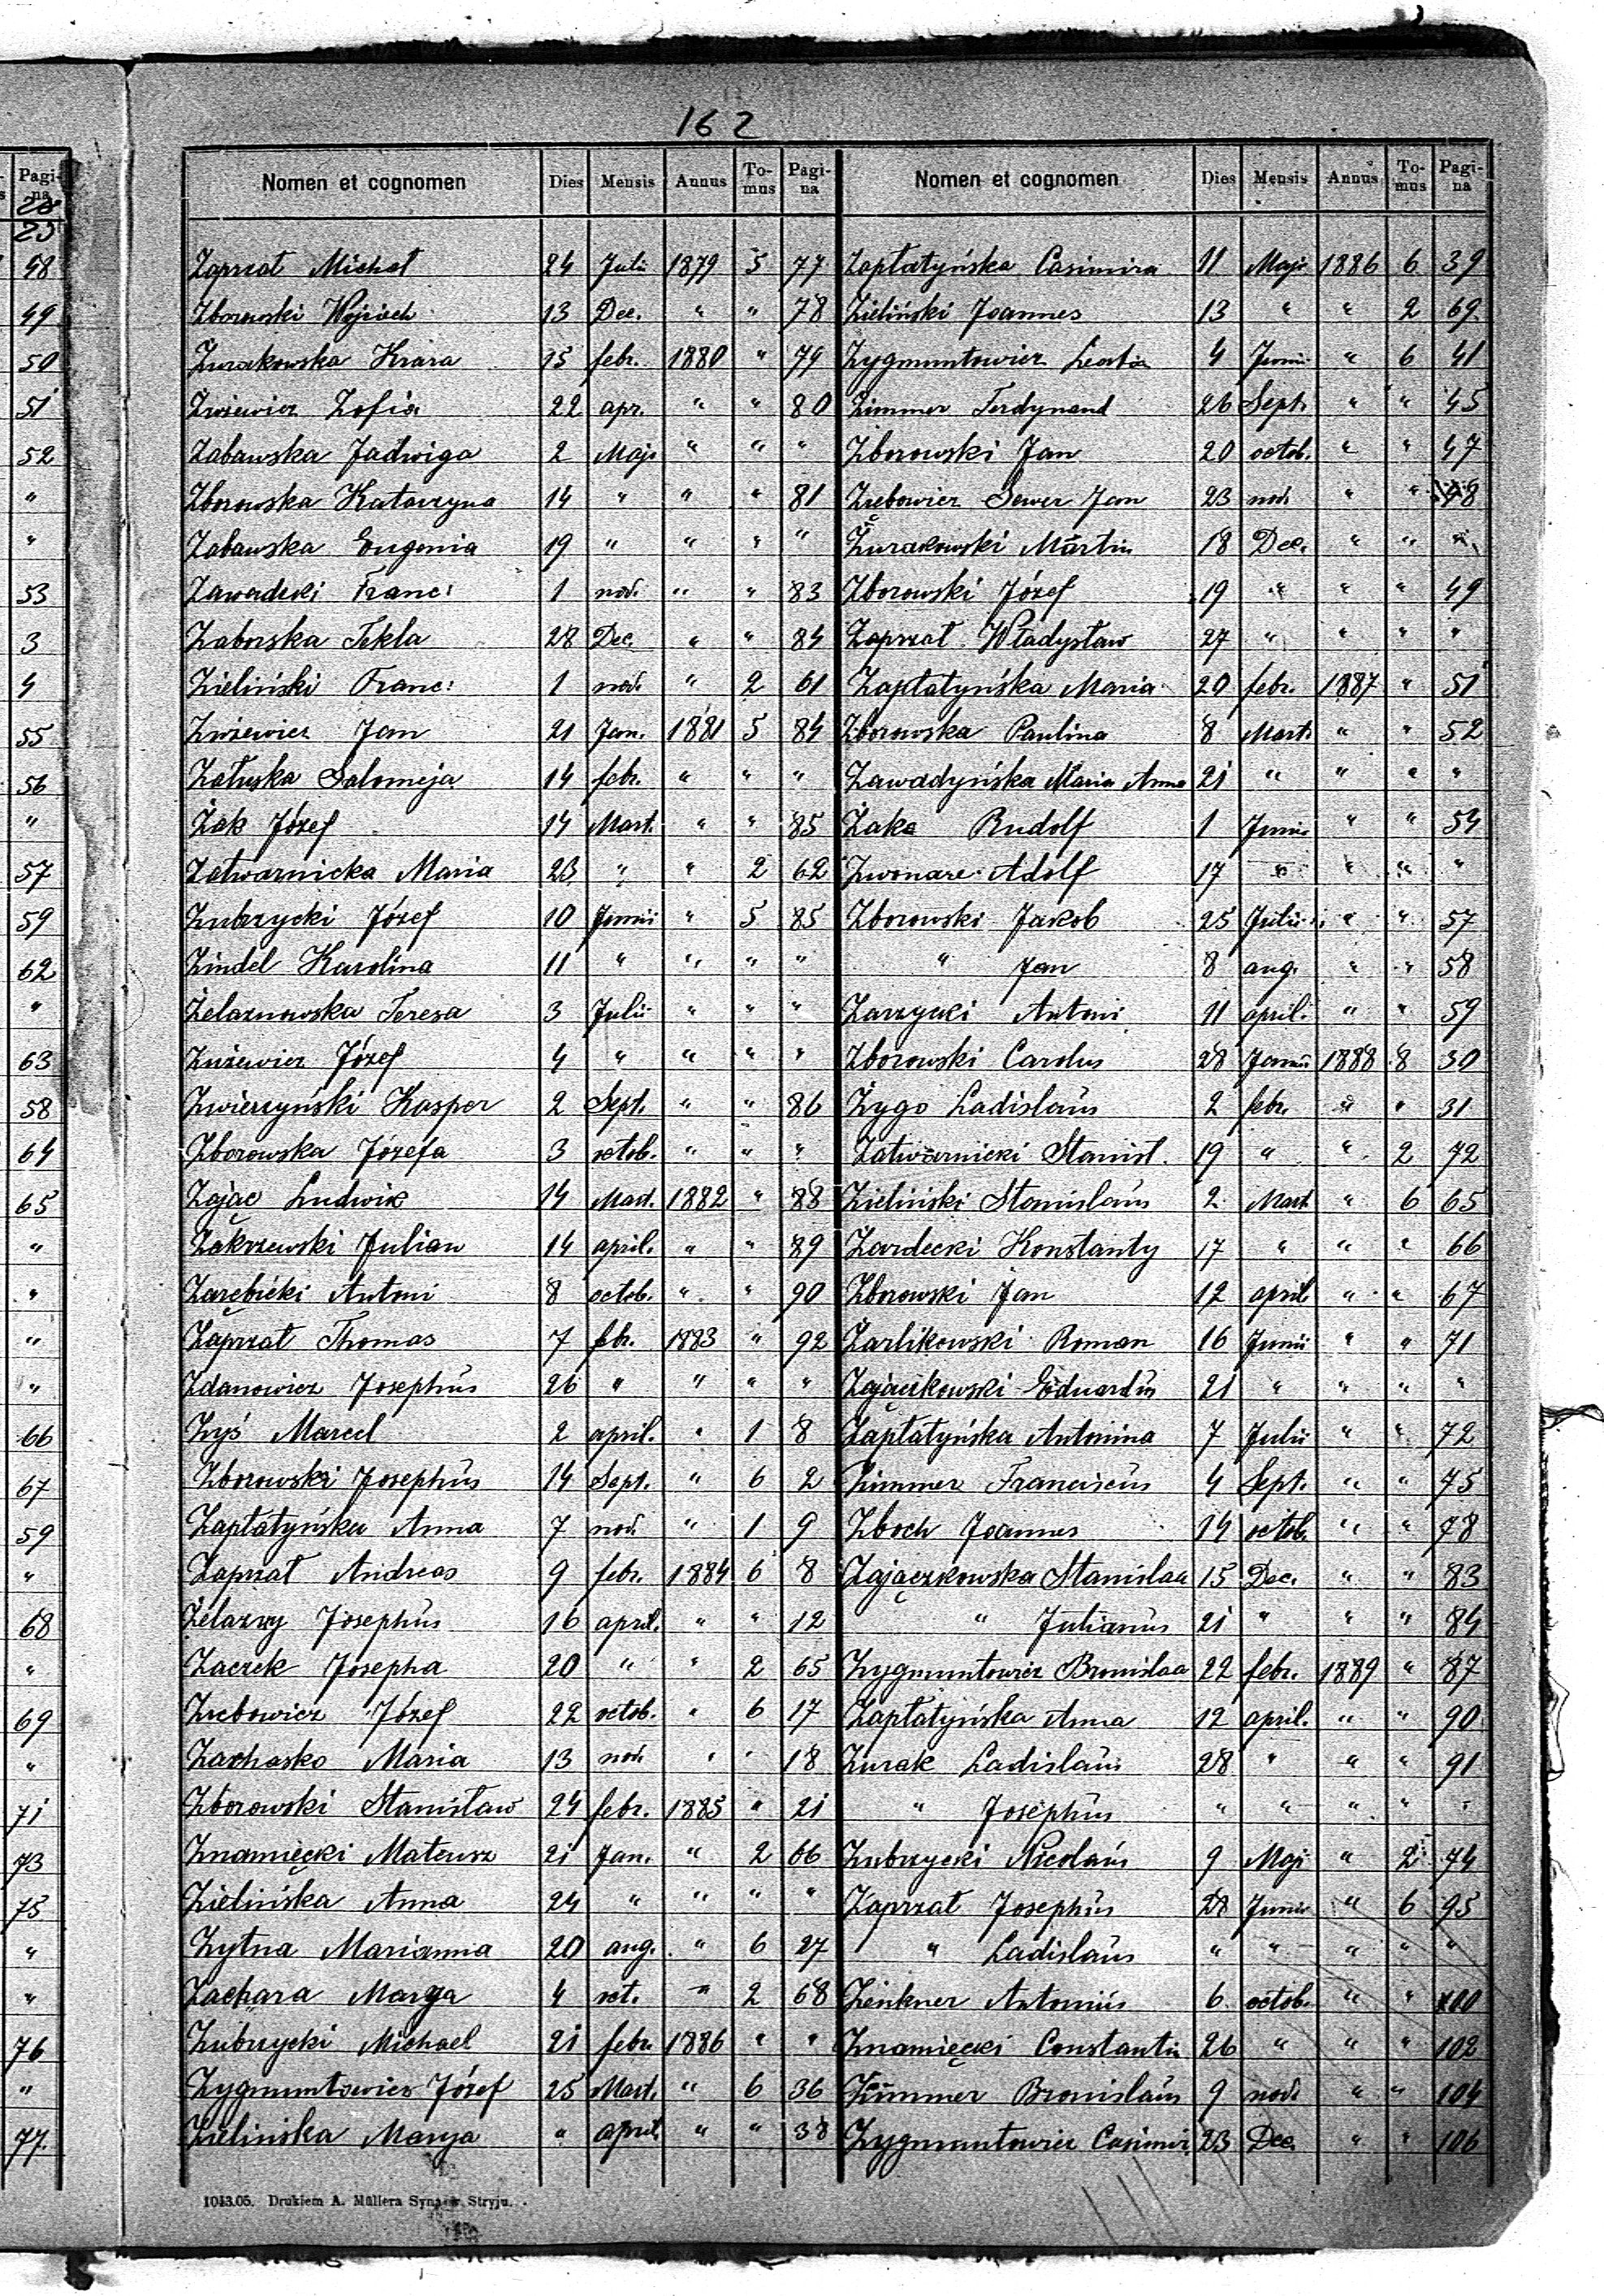 162
Pagi-
na
28
23
48
49
50
51
52
"
"
53
3
4
55
56
"
57
59
62
"
63
58
64
65
"
"
"
"
66
67
59
"
68
"
69
"
71
73
75
"
"
76
"
77
Nomen et cognomen Dies Mensis Annus To-mus Pagi-na
Zaprzat Michał 24 Julii 1879 5 77
Zborowski Wojciech 13 Dec. " " 78
Żurakowska Klara 15 febr. 1880 " 79
Zwiewicz Zofia 22 apr. " " 80
Zabawska Jadwiga 2 Maji " " "
Zborowska Katarzyna 14 " " " 81
Zabawska Eugenia 19 " " " "
Zawadecki Franc: 1 nov. " " 83
Zaborska Tekla 28 Dec. " " 84
Zieliński Franc: 1 nov. " 2 61
Zwiewicz Jan 21 Jan. 1881 5 84
Załuska Salomeja 14 febr. " " "
Żak Józef 14 Mart. " " 85
Zatwarnicka Maria 23 " " 2 62
Zubrzycki Józef 10 Junii " 5 85
Zindel Karolina 11 " " " "
Żelaznowska Teresa 3 Julii " " "
Zużewicz Józef 4 " " " "
Zwierzyński Kasper 2 Sept. " " 86
Zborowska Józefa 3 octob. " " "
Zając Ludwik 14 Mart. 1882 " 88
Zakrzewski Julian 14 april. " " 89
Zarębicki Antoni 8 octob. " " 90
Zaprzat Thomas 7 feb. 1883 " 92
Zdanowicz Josephus 26 " " " "
Zyś Marcel 2 april. " 1 8
Zborowski Josephus 14 Sept. " 6 2
Zapłatyńska Anna 7 nov. " 1 9
Zaprzat Andreas 9 febr. 1884 6 8
Żelazny Josephus 16 april. " " 12
Zaczek Josepha 20 " " 2 65
Zrebowicz Józef 22 octob. " 6 17
Zachasko Maria 13 nov. " " 18
Zborowski Stanisław 24 febr. 1885 " 21
Znamięcki Mateusz 21 Jan. " 2 66
Zielińska Anna 24 " " " "
Zytna Marianna 20 aug. " 6 27
Zachara Marya 4 oct. " 2 68
Zubrzycki Michael 21 febr. 1886 " "
Zygmuntowicz Józef 25 Mart. " 6 36
Zielinska Marya " april. " " 38
Nomen et cognomen Dies Mensis Annus To-mus Pagi-na
Zapłatyńska Casimira 11 Maji 1886 6 39
Zieliński Joannes 13 " " 2 69
Zygmuntowicz 4 Junii " 6 41
Zimmer Ferdynand 26 Sept. " " 45
Zborowski Jan 20 octob. " " 47
Zrebowicz Sewer Jan 23 nov. " " 48
Żurakowski Martin 18 Dec. " " "
Zborowski Józef 19 " " " 49
Zaprzat Władysław 27 " " " "
Zapłatyńska Maria 20 febr. 1887 " 51
Zborowska Paulina 8 Mart. " " 52
Zawadyńska Maria Anna 21 " " " "
Żaka Rudolf 1 Junii " " 54
Zwonarz Adolf 17 " " " "
Zborowski Jakob 25 Julii " " 57
" Jan 8 aug. " " 58
Zarzycki Antoni 11 april. " " 59
Zborowski Carolus 28 Januii 1888 8 30
Żygo Ladislaus 2 febr. " " 31
Zatwarnicki Stanisł. 19 " " 2 72
Zieliński Stanislaus 2 Mart. " 6 65
Zardecki Konstanty 17 " " " 66
Zborowski Jan 12 april " " 67
Żarlikowski Roman 16 Junii " " 71
Zajączkowski Eduardus 21 " " " "
Zapłatyńska Antonina 7 Julii " " 72
Zimmer Franciscus 4 Sept. " " 75
Zboch Joannes 14 octob. " " 78
Zajączkowska Stanislaa 15 Dec. " " 83
" Julianus 21 " " " 84
Zygmuntowicz Bronislaa 22 febr. 1889 " 87
Zapłatyńska Anna 12 april. " " 90
Zurak Ladislaus 28 " " " 91
" Josephus " " " " "
Zubrzycki Nicolaus 9 Maji " 2 74
Zaprzat Josephus 28 Junii " 6 95
" Ladislaus " " " " "
Zenkner Antonius 6 octob. " " 100
Znamięcki Constantin 26 " " " 102
Zimmer Bronislaus 9 nov. " " 104
Zygmuntowicz Casimir. 23 Dec. " " 106
1043.05. Drukiem A. Müllera Syna w Stryju.